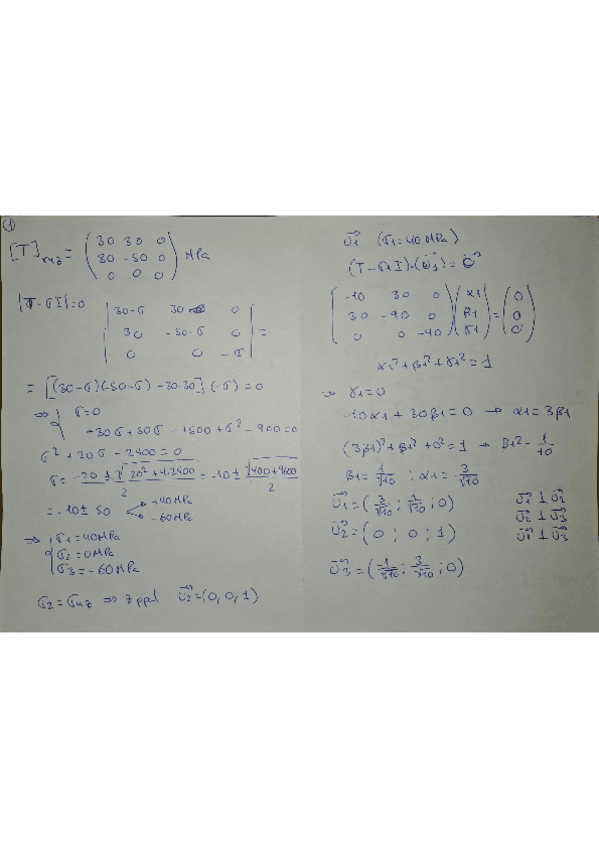 ①
[T]xyz = ( 30 30 0
30 -50 0
0 0 0 ) MPa
|T-σI|=0
| 30-σ 30 0
30 -50-σ 0
0 0 -σ | =
= [(30-σ)(-50-σ) -30·30](-σ) = 0
⇒ { σ=0
-30σ+50σ-1500+σ²-900=0
σ²+20σ-2400=0
σ= (-20 ± √(20²+4·2400))/2 = -10 ± √(400+9600)/2
= -10 ± 50 → +40MPa
→ -60MPa
⇒ { σ1=40MPa
σ2=0MPa
σ3=-60MPa
σ2=σnz ⇒ z ppal v⃗2=(0,0,1)
v⃗1 (σ1=40MPa)
(T-σ1I)·(v⃗1)=0⃗
( -10 30 0
30 -90 0
0 0 -40 ) ( α1
β1
γ1 ) = ( 0
0
0 )
α1²+β1²+γ1²=1
⇒ γ1=0
-10α1+30β1=0 → α1=3β1
(3β1)²+β1²+0²=1 → β1²=1/10
β1=1/√10 ; α1=3/√10
v⃗1=(3/√10 ; 1/√10 ; 0) v⃗1 ⊥ v⃗2
v⃗2=(0 ; 0 ; 1) v⃗2 ⊥ v⃗3
v⃗1 ⊥ v⃗3
v⃗3=(-1/√10 ; 3/√10 ; 0)